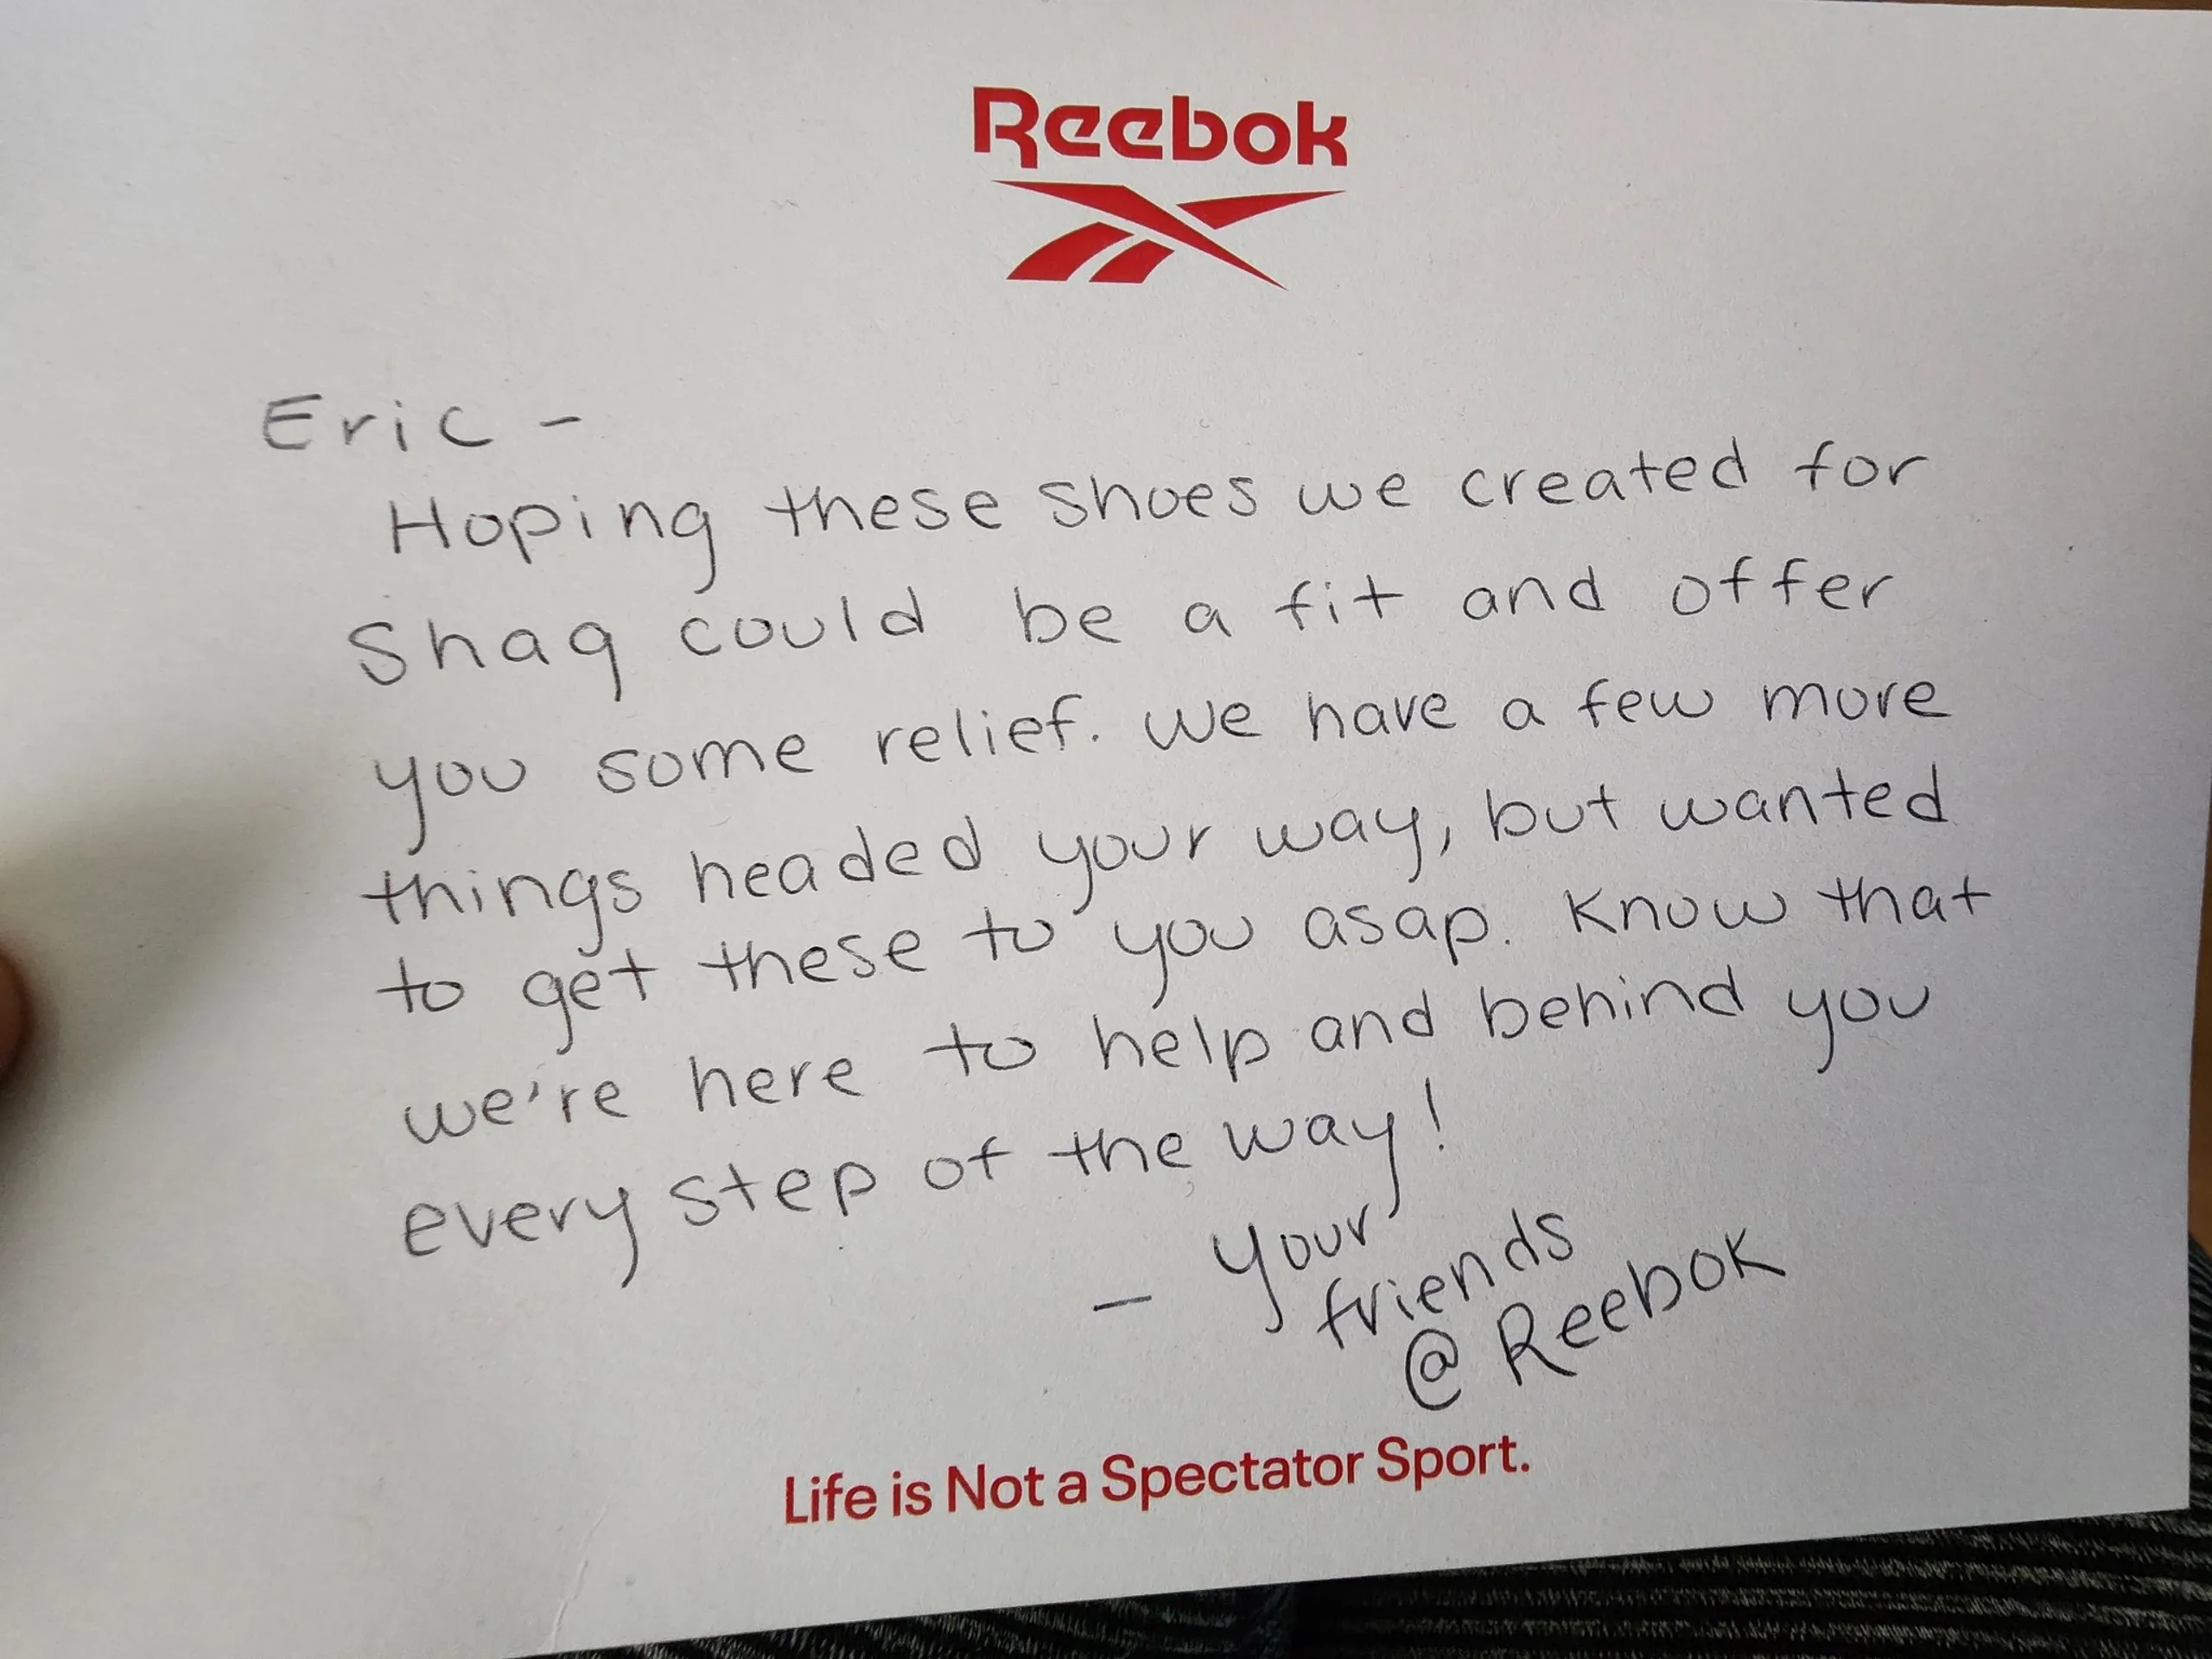 Reebok
Eric -
Hoping these shoes we created for
Shaq could be a fit and offer
you some relief. We have a few more
things headed your way, but wanted
to get these to you asap. Know that
we're here to help and behind you
every step of the way!
- your
friends
@ Reebok
Life is Not a Spectator Sport.